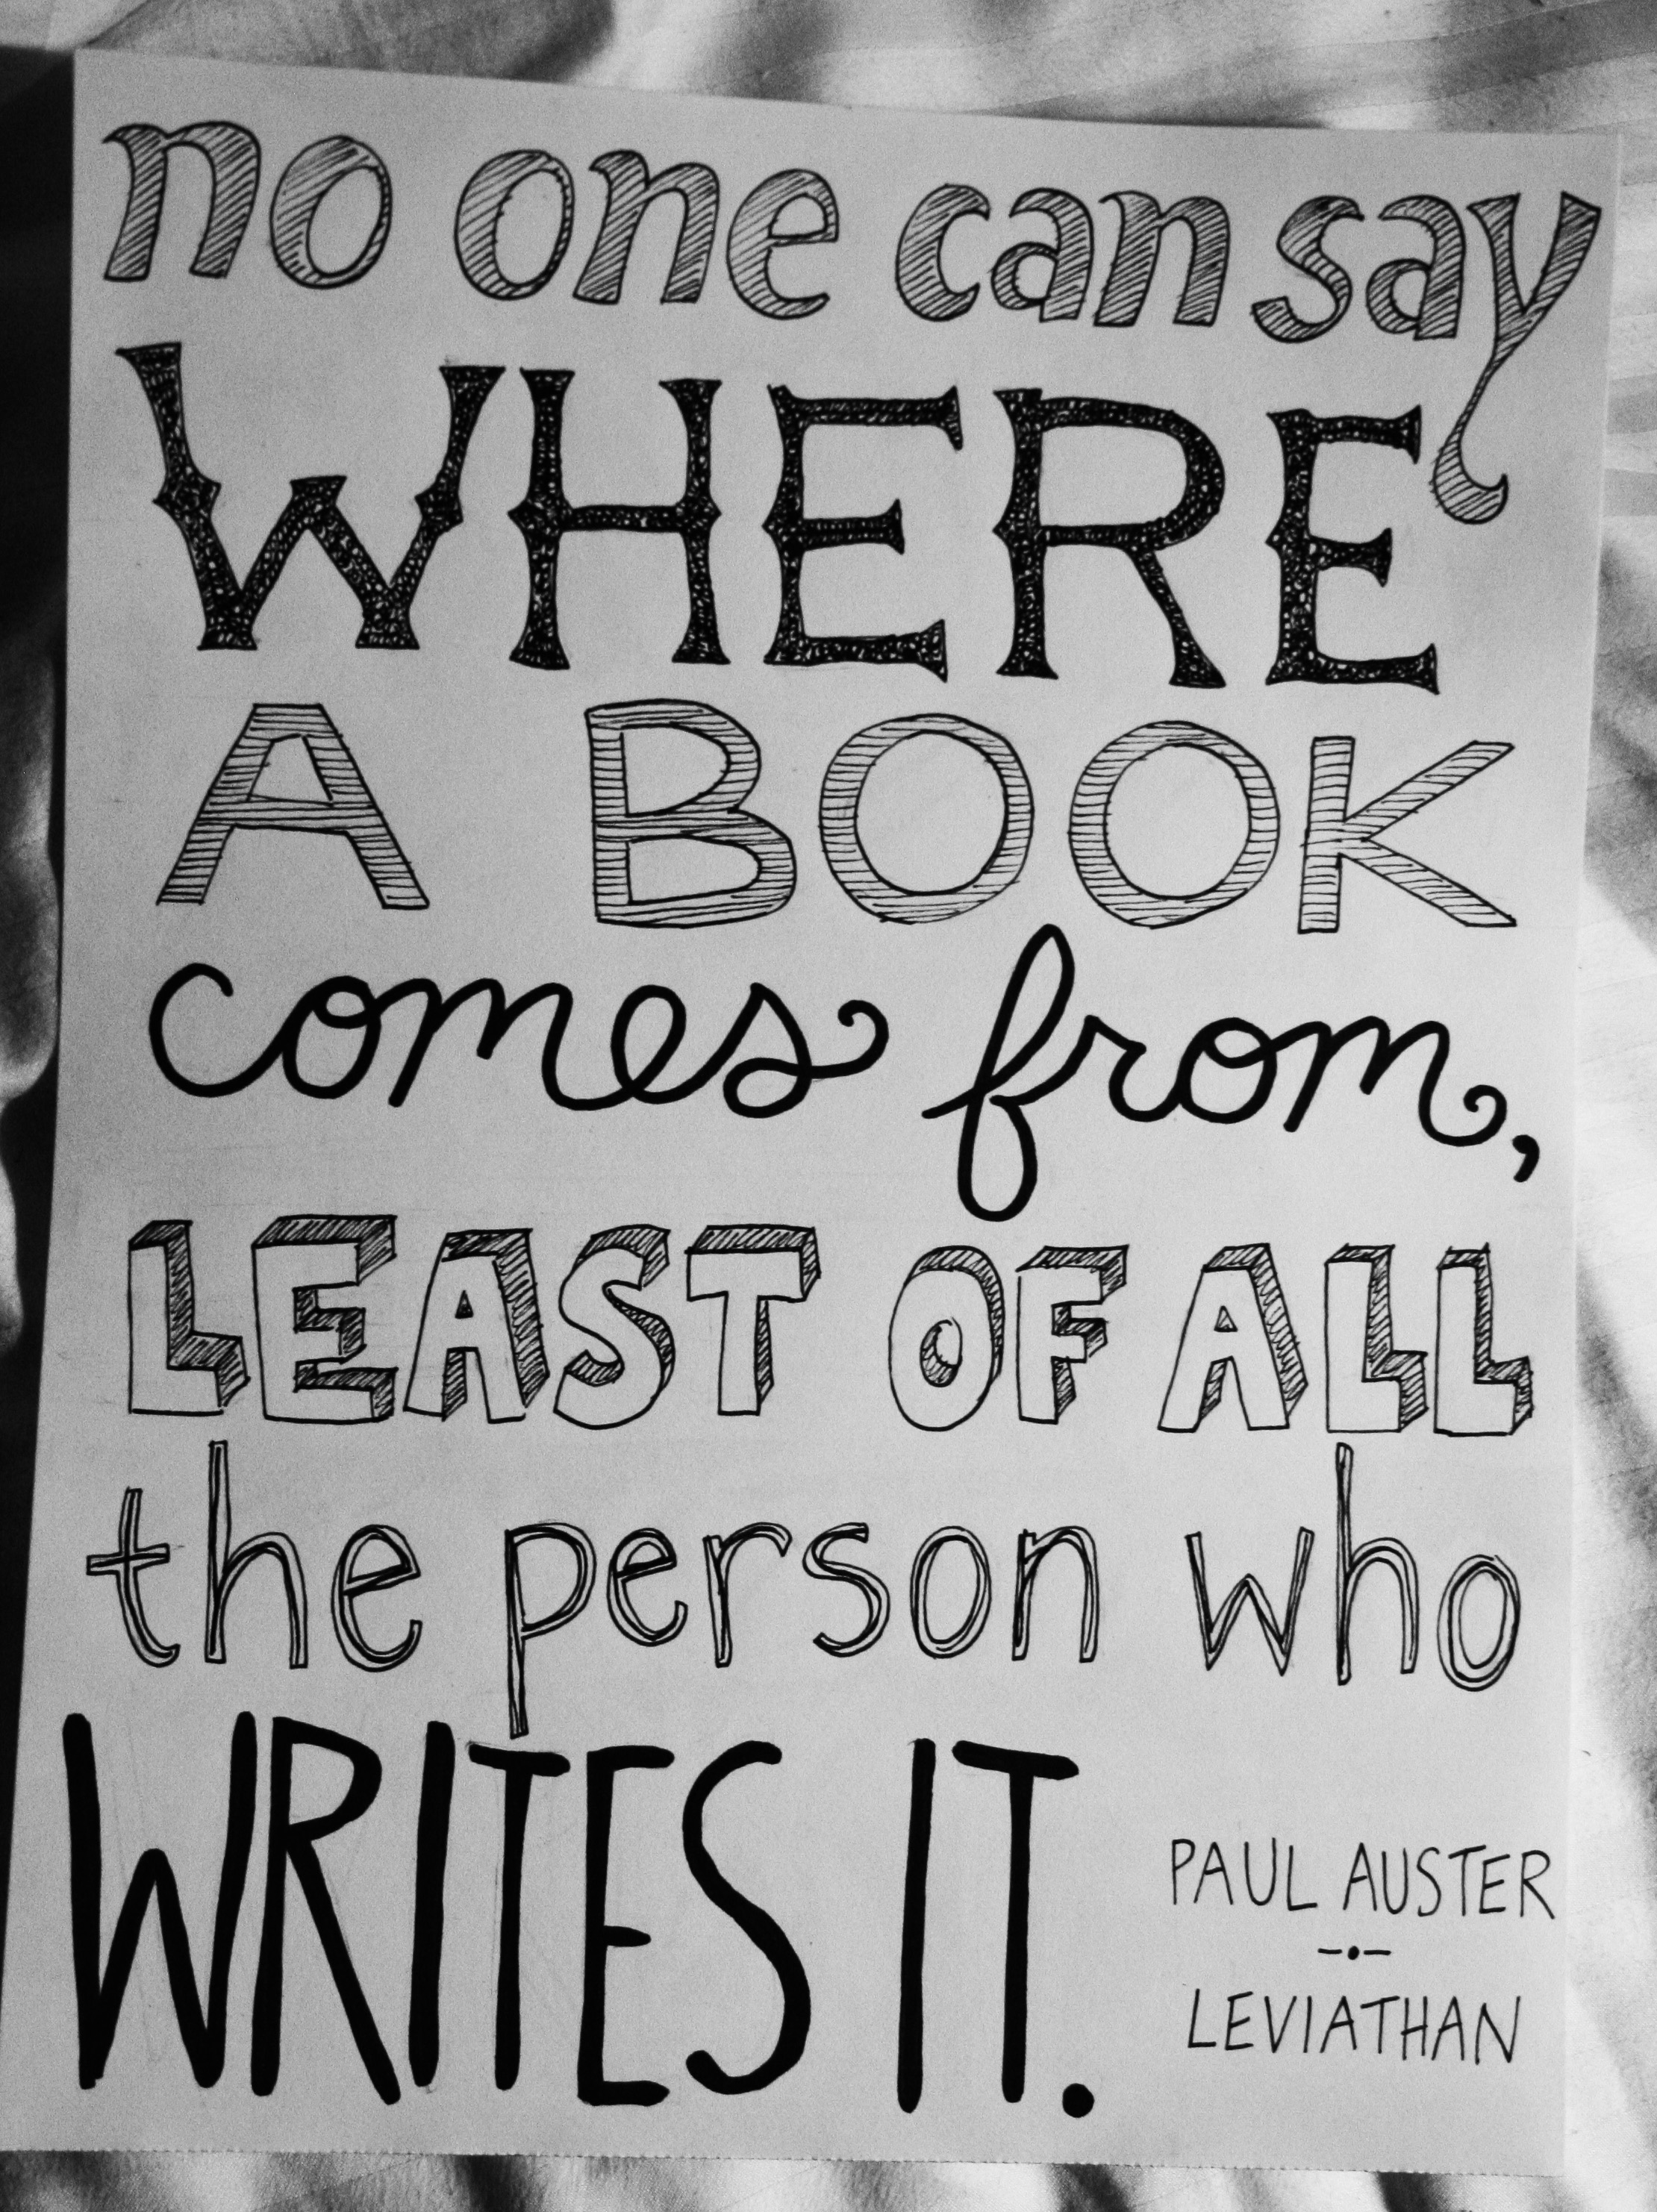 no one can say
WHERE
A BOOK
comes from,
LEAST OF ALL
the person who
WRITES IT.
PAUL AUSTER
-•-
LEVIATHAN